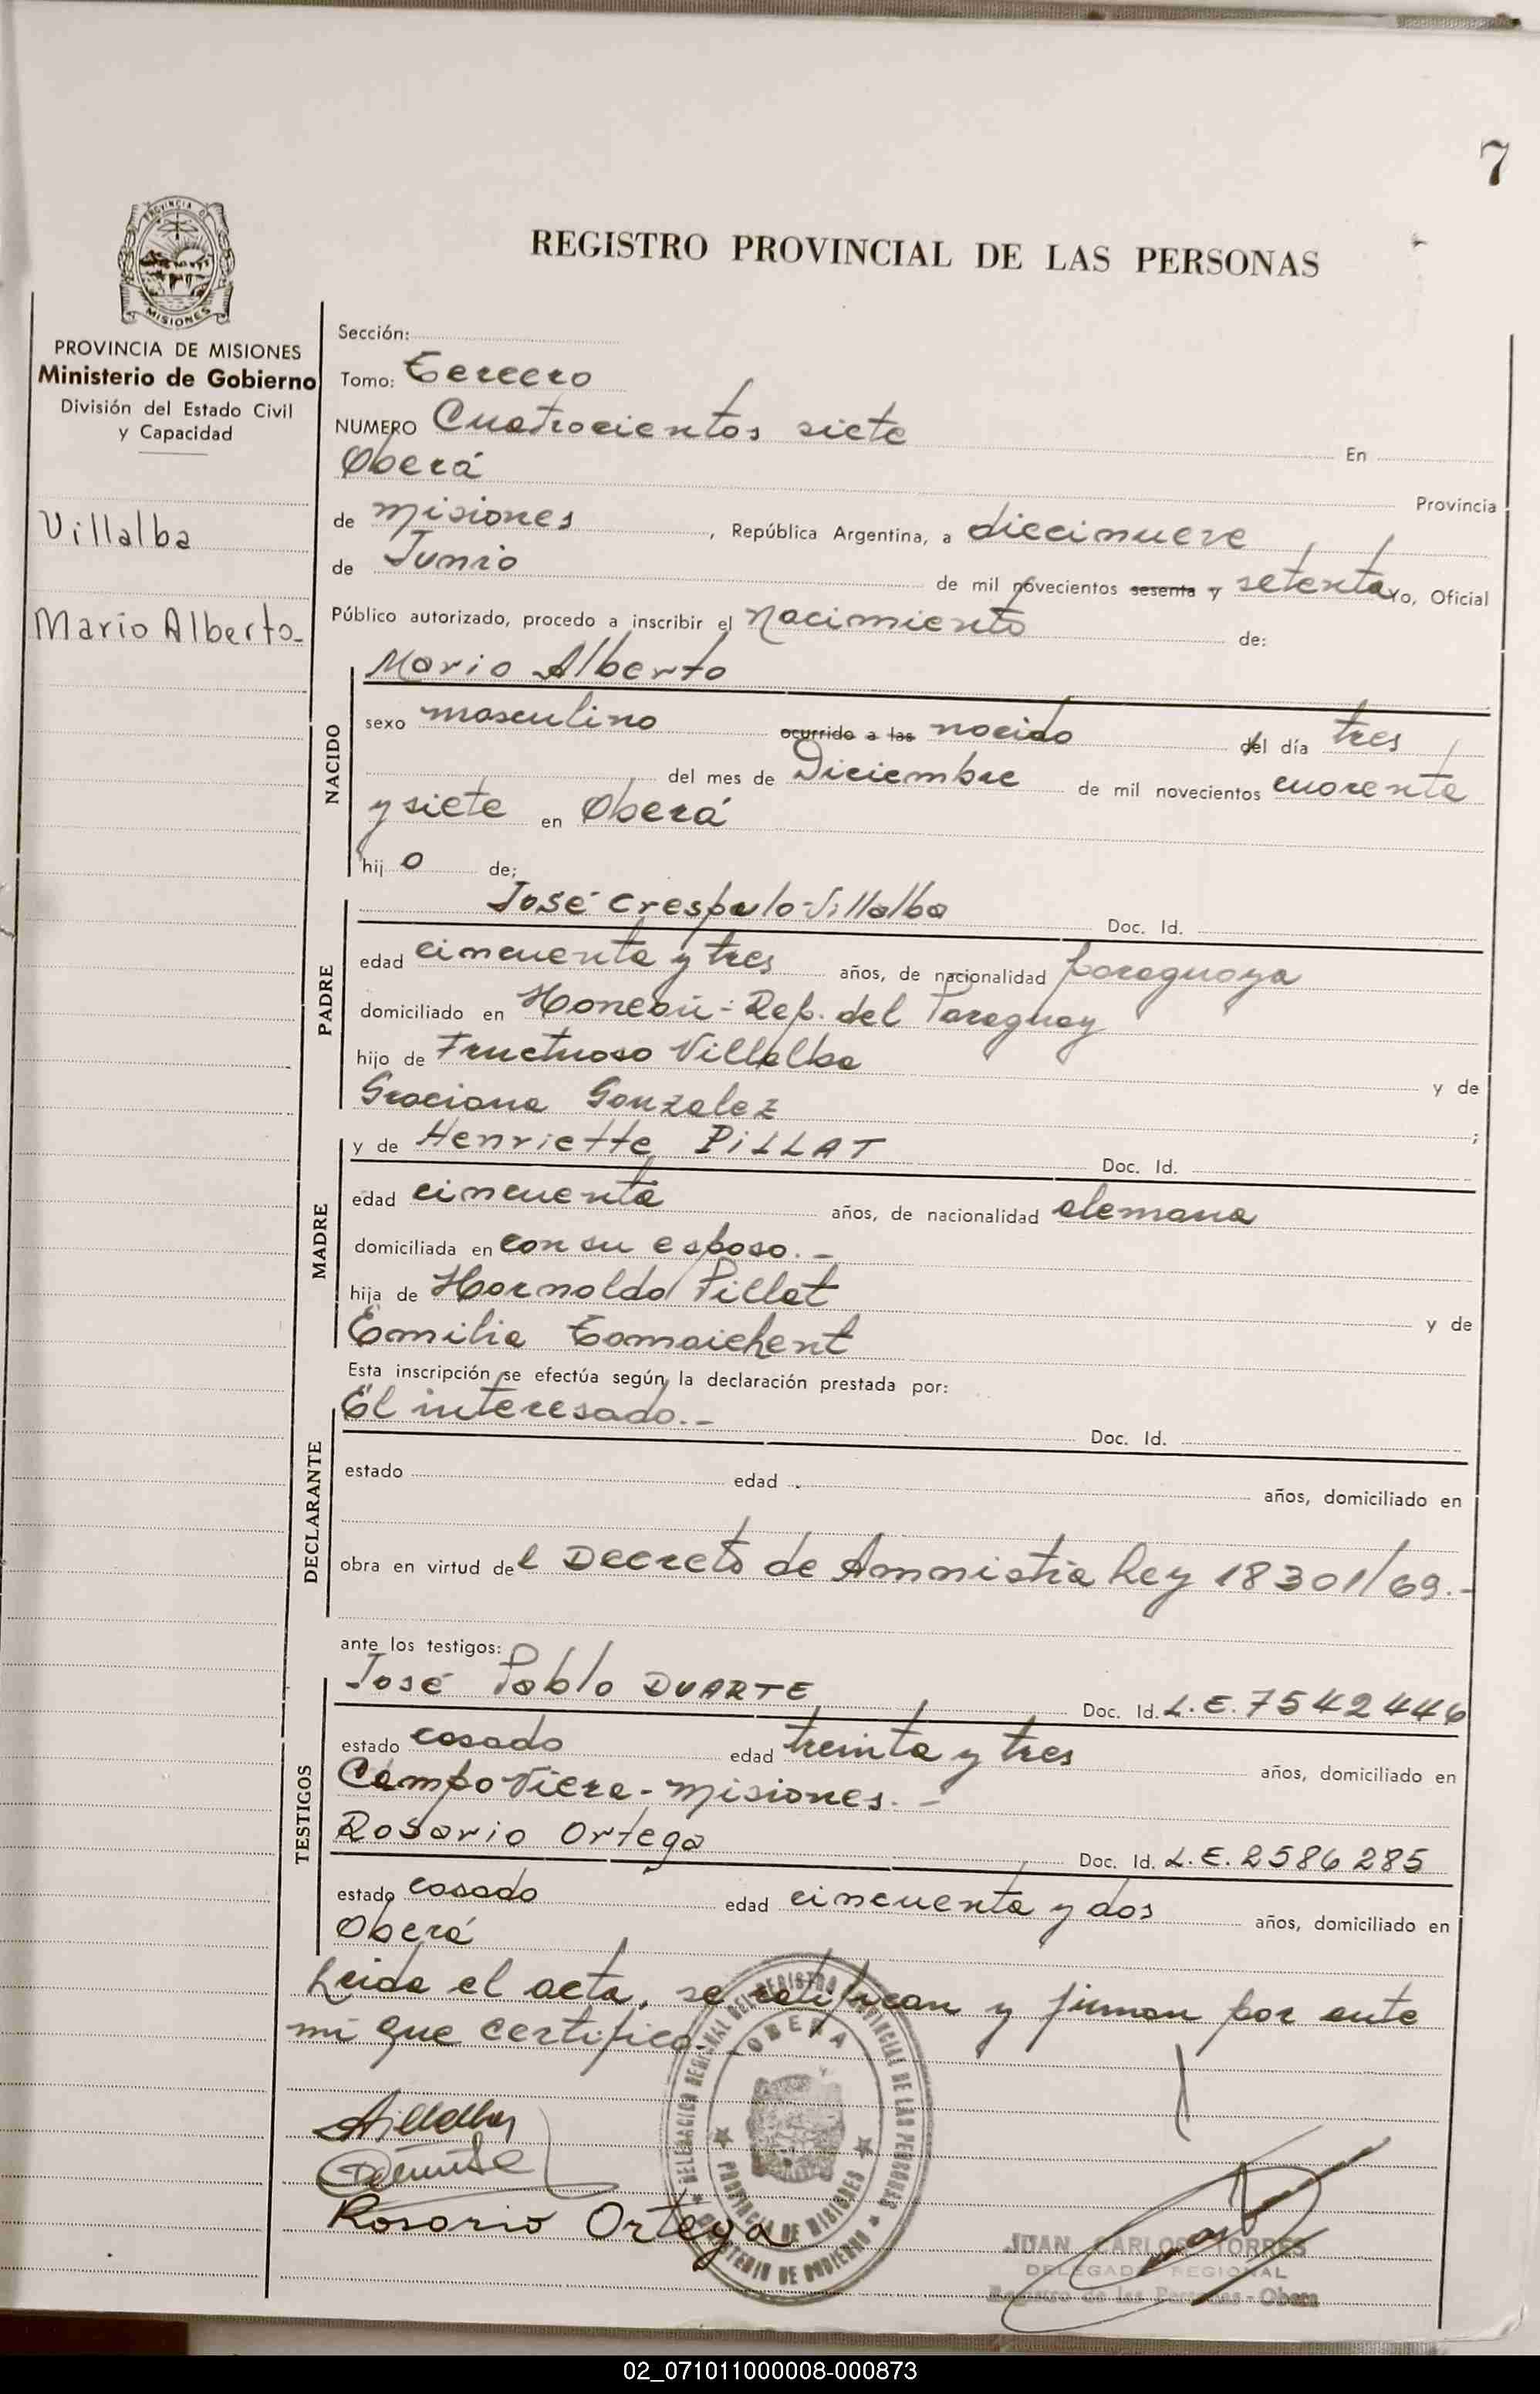 7
REGISTRO PROVINCIAL DE LAS PERSONAS
PROVINCIA DE
MISIONES
PROVINCIA DE MISIONES
Ministerio de Gobierno
División del Estado Civil
y Capacidad
Villalba
Mario Alberto
Sección:
Tomo: Tercero
NUMERO Cuatrocientos siete En
Oberá Provincia
de Misiones, República Argentina, a diecinueve
de Junio de mil novecientos sesenta y setenta yo, Oficial
Público autorizado, procedo a inscribir el Nacimiento de:
NACIDO
Mario Alberto
sexo masculino ocurrido a las nacido del día tres
del mes de Diciembre de mil novecientos cuarenta
y siete en Oberá
hij o de;
PADRE
José Crespulo Villalba Doc. Id.
edad cincuenta y tres años, de nacionalidad paraguaya
domiciliado en Honeau - Rep. del Paraguay
hijo de Fructuoso Villalba y de
Graciana Gonzalez ;
MADRE
y de Henriette PILLAT Doc. Id.
edad cincuenta años, de nacionalidad alemana
domiciliada en con su esposo.-
hija de Hornoldo Pillat y de
Emilia
Esta inscripción se efectúa según la declaración prestada por:
DECLARANTE
El interesado.- Doc. Id.
estado edad años, domiciliado en
obra en virtud del Decreto de Amnistia Ley 18301/69.-
ante los testigos:
TESTIGOS
José Pablo DUARTE Doc. Id. L.E. 7542446
estado casado edad treinta y tres años, domiciliado en
Campo Viera - Misiones.-
Rosario Ortega Doc. Id. L.E. 2586285
estado casado edad cincuenta y dos años, domiciliado en
Oberá
Leida el acta, se ratifican y firman por ante
mi que certifico.-
DELEGACION REGIONAL DEL REGISTRO PROVINCIAL DE LAS PERSONAS
OBERA
PROVINCIA DE MISIONES
MINISTERIO DE GOBIERNO
Villalba
Rosario Ortega
JUAN CARLOS TORRES
DELEGADO REGIONAL
Registro de las Personas - Obera
02_071011000008-000873